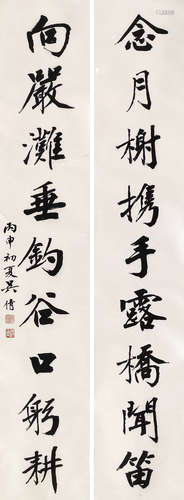 念月榭携手露橋聞笛
向嚴灘垂釣谷口躬耕
丙申初夏吳倩